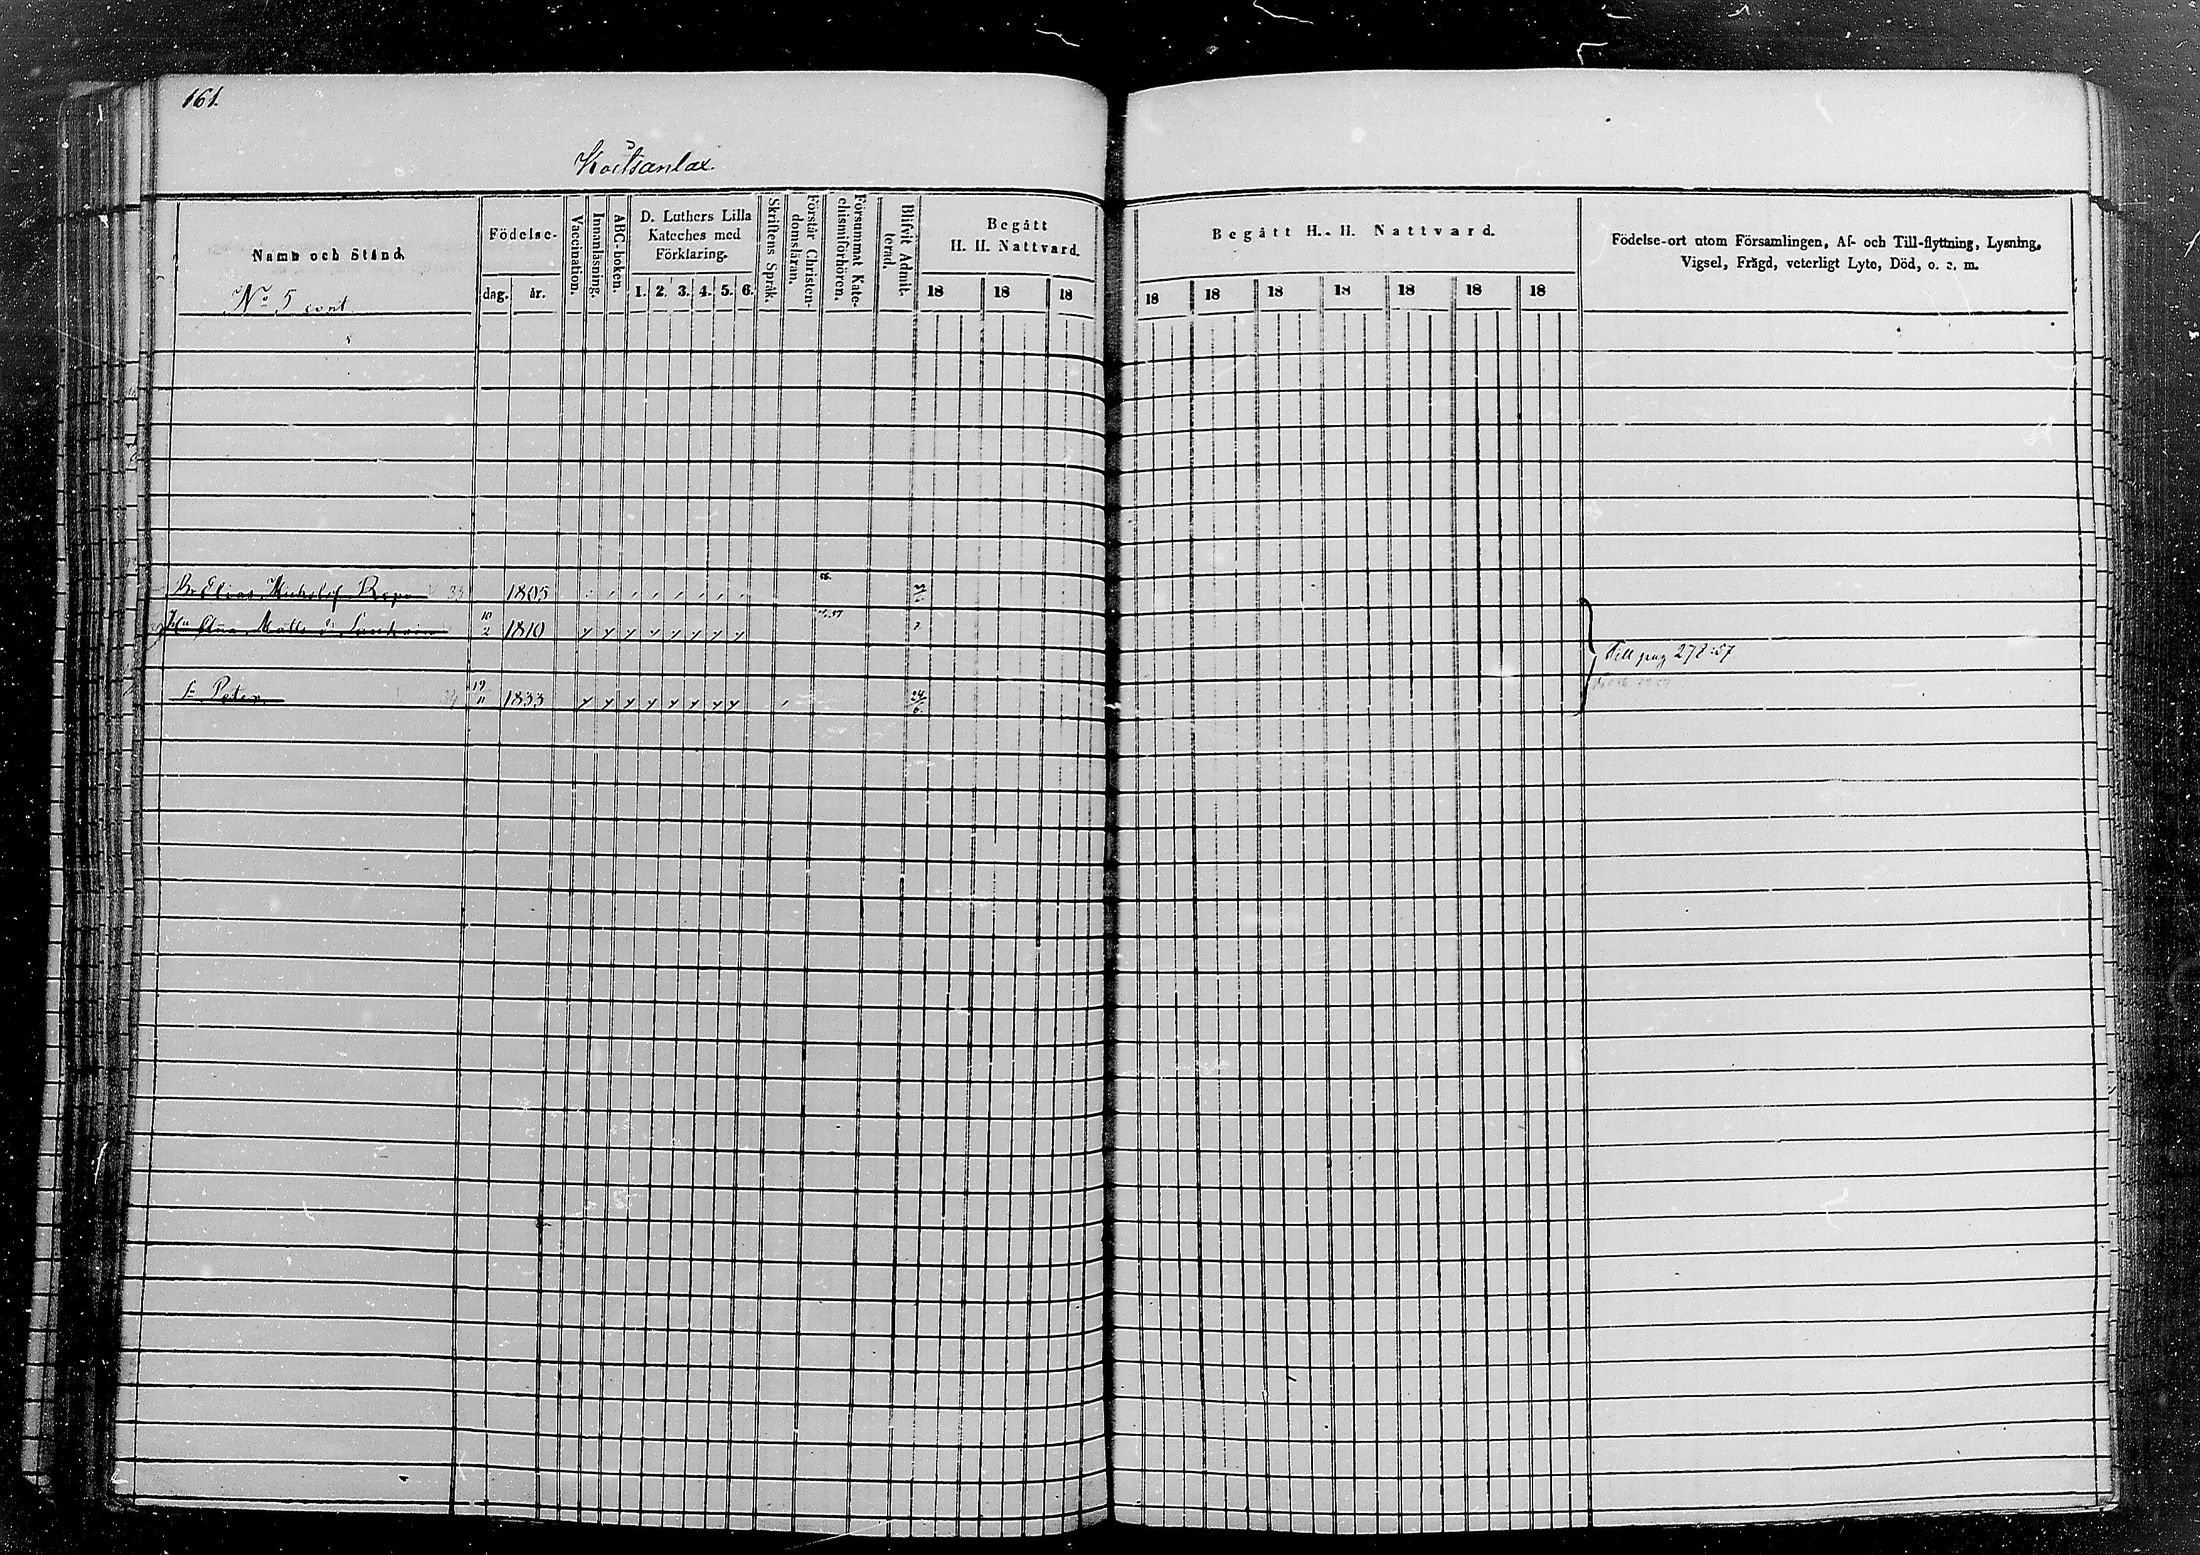 161.
Koitsanlax.
Namn och Stånd.
No 5 cont.
Födelse-
dag. år.
Vaccination.
Innanläsning.
ABC-boken.
D. Luthers Lilla
Kateches med
Förklaring.
1. 2. 3. 4. 5. 6.
Skriftens Språk.
Förstår Christen-
domsläran.
Försummat Kate-
chismiförhören.
Blifvit Admit-
terad.
Begått
H. H. Nattvard.
18 18 18
Begått H. H. Nattvard.
18 18 18 18 18 18 18
Födelse-ort utom Församlingen, Af- och Till-flyttning, Lysning,
Vigsel, Frägd, veterligt Lyte, Död, o. s. m.
Elias Repo 1805
10/2 1810
Till pag 278:57
S. Peter 19/11 1833 24/6